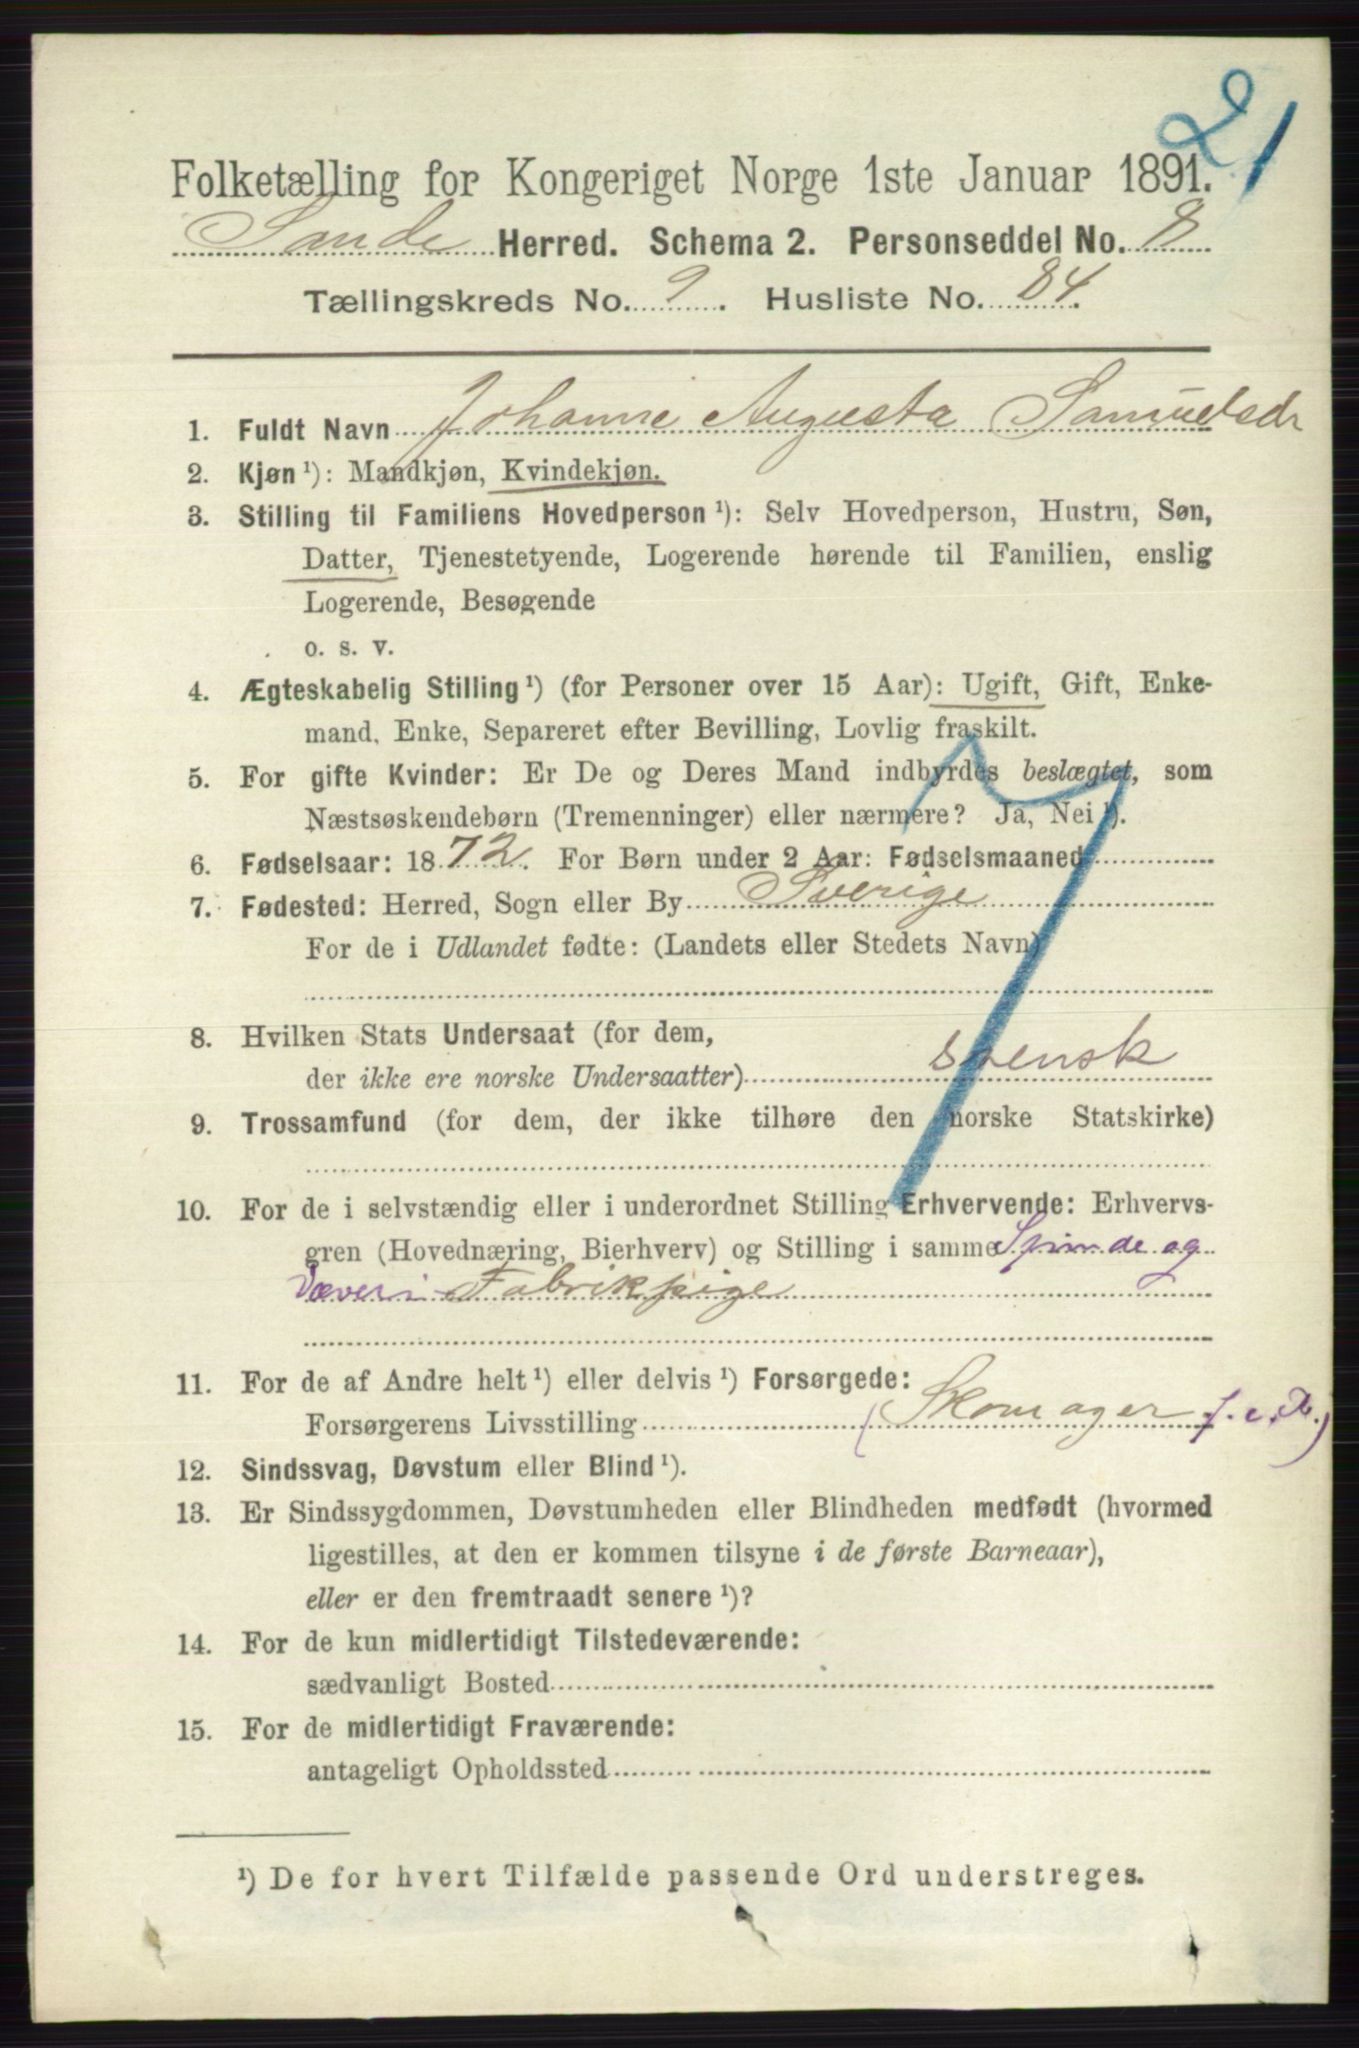 21
Folketælling for Kongeriget Norge 1ste Januar 1891.
Sande Herred. Schema 2. Personseddel No. 8
Tællingskreds No. 9. Husliste No. 84.
1. Fuldt Navn Johanne Augusta Samuelsdr
2. Kjøn ¹): Mandkjøn, Kvindekjøn.
3. Stilling til Familiens Hovedperson ¹): Selv Hovedperson, Hustru, Søn,
Datter, Tjenestetyende, Logerende hørende til Familien, enslig
Logerende, Besøgende
o. s. v.
4. Ægteskabelig Stilling ¹) (for Personer over 15 Aar): Ugift, Gift, Enke-
mand, Enke, Separeret efter Bevilling, Lovlig fraskilt.
5. For gifte Kvinder: Er De og Deres Mand indbyrdes beslægtet, som
Næstsøskendebørn (Tremenninger) eller nærmere? Ja, Nei ¹).
6. Fødselsaar: 1872. For Børn under 2 Aar: Fødselsmaaned
7. Fødested: Herred, Sogn eller By Sverige
For de i Udlandet fødte: (Landets eller Stedets Navn)
8. Hvilken Stats Undersaat (for dem,
der ikke ere norske Undersaatter) svensk
9. Trossamfund (for dem, der ikke tilhøre den norske Statskirke)
10. For de i selvstændig eller i underordnet Stilling Erhvervende: Erhvervs-
gren (Hovednæring, Bierhverv) og Stilling i samme Spinde og
Væveri Fabrikpige
11. For de af Andre helt ¹) eller delvis ¹) Forsørgede:
Forsørgerens Livsstilling (Skomager f. e. R.)
12. Sindssvag, Døvstum eller Blind ¹).
13. Er Sindssygdommen, Døvstumheden eller Blindheden medfødt (hvormed
ligestilles, at den er kommen tilsyne i de første Barneaar),
eller er den fremtraadt senere ¹)?
14. For de kun midlertidigt Tilstedeværende:
sædvanligt Bosted
15. For de midlertidigt Fraværende:
antageligt Opholdssted
¹) De for hvert Tilfælde passende Ord understreges.